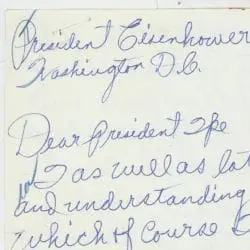 President Eisenhower
Washington D.C.
Dear President Ike
I as well as lot
and understanding
which of course